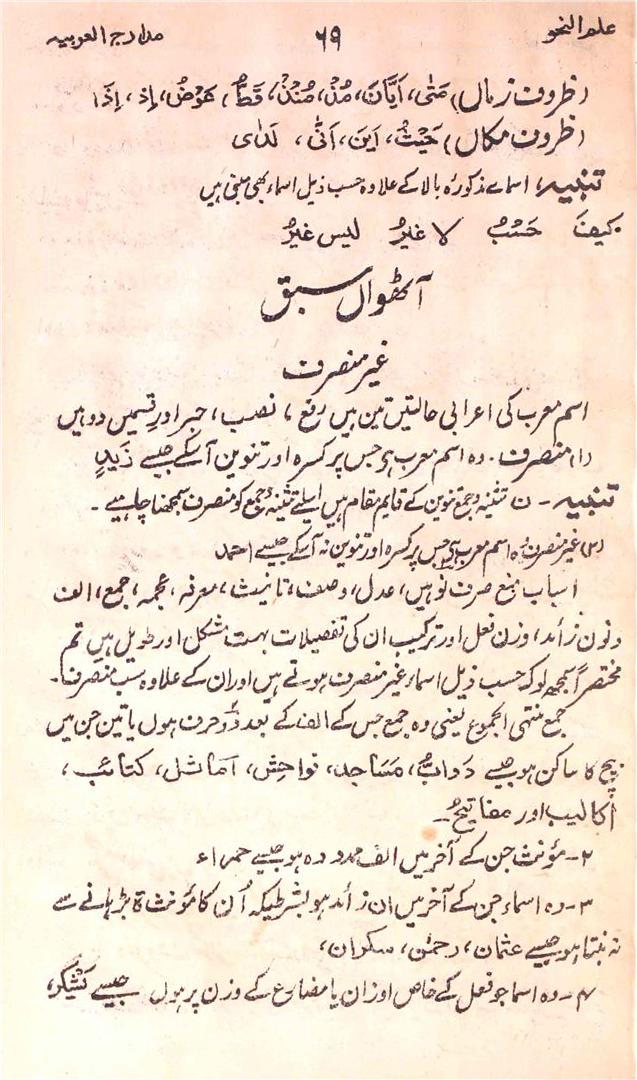 علم النحو ٦٩ مدارج العربیہ
(ظروف زماں) مَتٰی، اَیَّانَ، مُذْ، مُنْذُ، قَطُّ، عَوْضُ، اِذ، اِذَا
(ظروف مکاں) حَیْثُ، اَینَ، اَنّٰی، لَدٰی
تنبیہ، اسمائے مذکورہ بالا کے علاوہ حسب ذیل اسماء بھی مبنی ہیں
کیفَ حَسْبُ لا غیرُ لیس غیرُ
آٹھواں سبق
غیر منصرف
اسم معرب کی اعرابی حالتیں تین ہیں رفع، نصب، جر اور قسمیں دو ہیں
(۱) منصرف۔ وہ اسم معرب ہے جس پر کسرہ اور تنوین آسکے جیسے زَیدٍ
تنبیہ۔ ن تثنیہ و جمع تنوین کے قایم مقام ہیں اسلئے تثنیہ و جمع کو منصرف سمجھنا چاہیے۔
(۲) غیر منصرف وہ اسم معرب ہے جس پر کسرہ اور تنوین نہ آسکے جیسے احمد
اسباب منع صرف نو ہیں، عدل، وصف، تانیث، معرفہ، عجمہ، جمع، الف
و نون زائد، وزن فعل اور ترکیب ان کی تفصیلات بہت مشکل اور طویل ہیں تم
مختصراً سمجھ لو کہ حسب ذیل اسماء غیر منصرف ہوتے ہیں اور ان کے علاوہ سب منصرف۔
جمع منتہی الجموع یعنی وہ جمع جس کے الف کے بعد دو حرف ہوں یا تین جن میں
بیچ کا ساکن ہو جیسے دَوَابُّ، مَسَاجد، نواحِش، اماثل، کتائب،
اَکالیب اور مفاتیحُ۔
۲۔ مؤنث جن کے آخر میں الف ممدودہ ہو جیسے حمراء
۳۔ وہ اسماء جن کے آخر میں ان زائد ہو بشرطیکہ اُن کا مؤنث ۃ بڑہانے سے
نہ بنتا ہو جیسے عثمان، رحمٰن، سکران،
۴۔ وہ اسما جو فعل کے خاص اوزان یا مضارع کے وزن پر ہوں جیسے